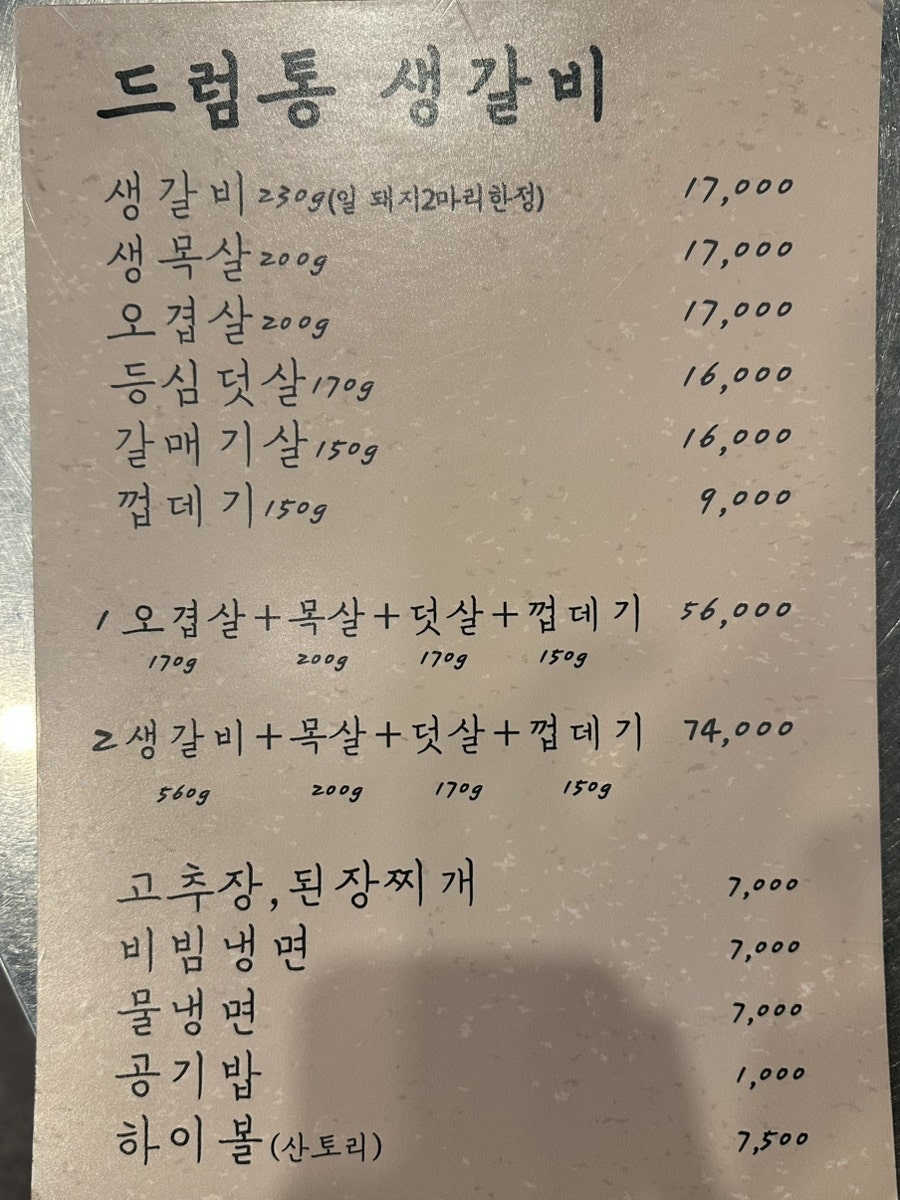 드럼통 생갈비
생갈비 230g(일 돼지2마리한정) 17,000
생목살 200g 17,000
오겹살 200g 17,000
등심덧살 170g 16,000
갈매기살 150g 16,000
껍데기 150g 9,000
1 오겹살+목살+덧살+껍데기 56,000
170g 200g 170g 150g
2 생갈비+목살+덧살+껍데기 74,000
560g 200g 170g 150g
고추장,된장찌개 7,000
비빔냉면 7,000
물냉면 7,000
공기밥 1,000
하이볼(산토리) 7,500